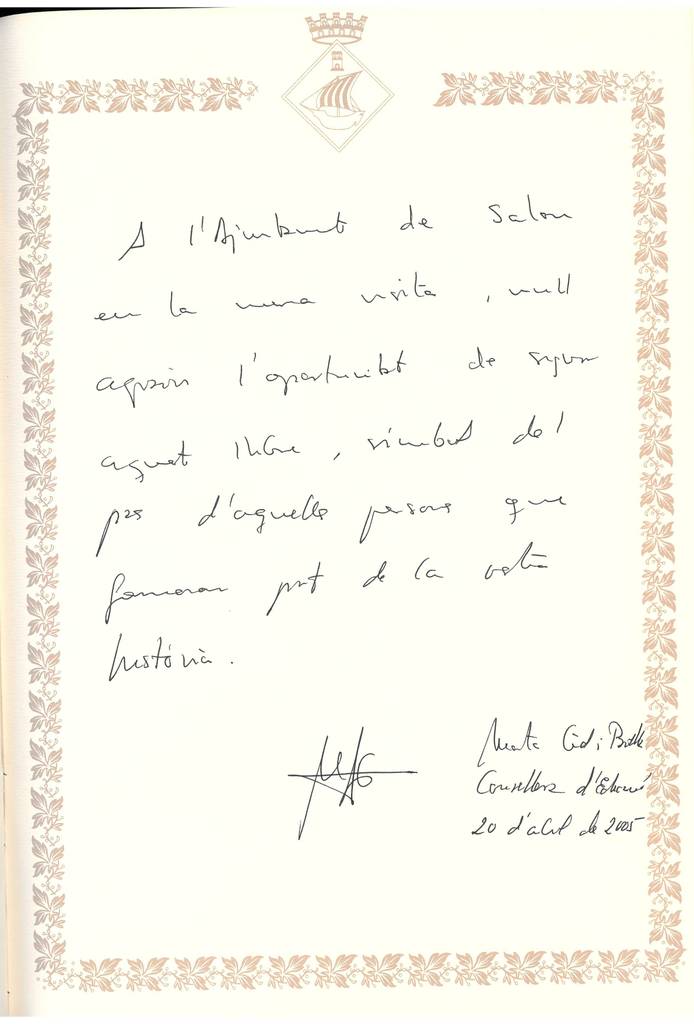 A l'Ajuntament de Salou
en la meva visita, vull
agrair l'oportunitat de signar
aquest llibre, símbol del
pas d'aquelles persones que
formaran part de la vostra
història.
Marta Cid i Pañella
Consellera d'Educació
20 d'abril de 2005